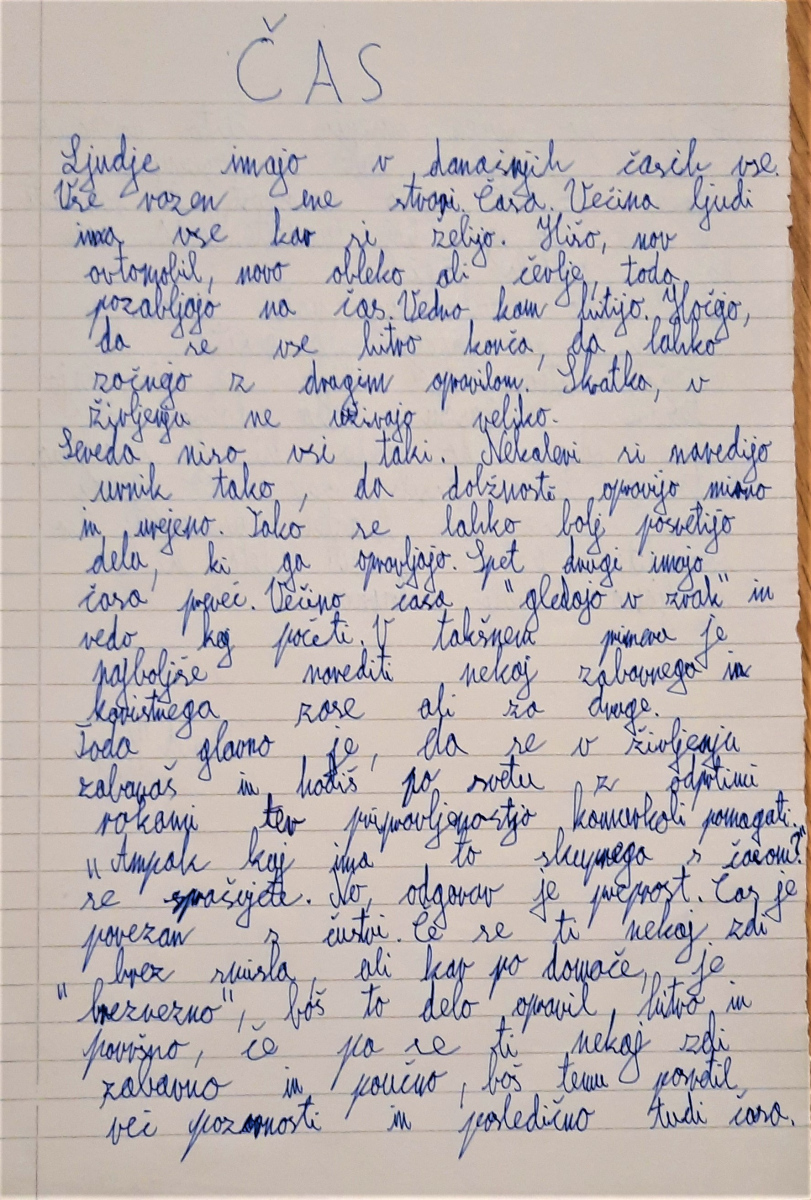 ČAS
Ljudje imajo v današnjih časih vse.
Vse razen ene stvari. Časa. Večina ljudi
ima vse kar si želijo. Hišo, nov
avtomobil, novo obleko ali čevlje, toda
pozabljajo na čas. Vedno kam hitijo. Hočejo,
da se vse hitro konča, da lahko
začnejo z drugim opravilom. Skratka, v
življenju ne uživajo veliko.
Seveda niso vsi taki. Nekateri si naredijo
urnik tako, da dolžnosti opravijo mirno
in urejeno. Tako se lahko bolj posvetijo
dela, ki ga opravljajo. Spet drugi imajo
časa preveč. Večino časa "gledajo v zrak" in
vedo kaj početi. V takšnem primeru je
najboljše narediti nekaj zabavnega in
koristnega zase ali za druge.
Toda glavno je, da se v življenju
zabavaš in hodiš po svetu z odprtimi
rokami ter pripravljenostjo komurkoli pomagati.
"Ampak kaj ima to skupnega s časom?"
se sprašujete. No, odgovor je preprost. Čas je
povezan s čustvi. Če se ti nekaj zdi
brez smisla, ali kar po domače, je
"brezvezno", boš to delo opravil, hitro in
površno, če pa se ti nekaj zdi
zabavno in poučno, boš temu posvetil
več pozornosti in posledično tudi časa.